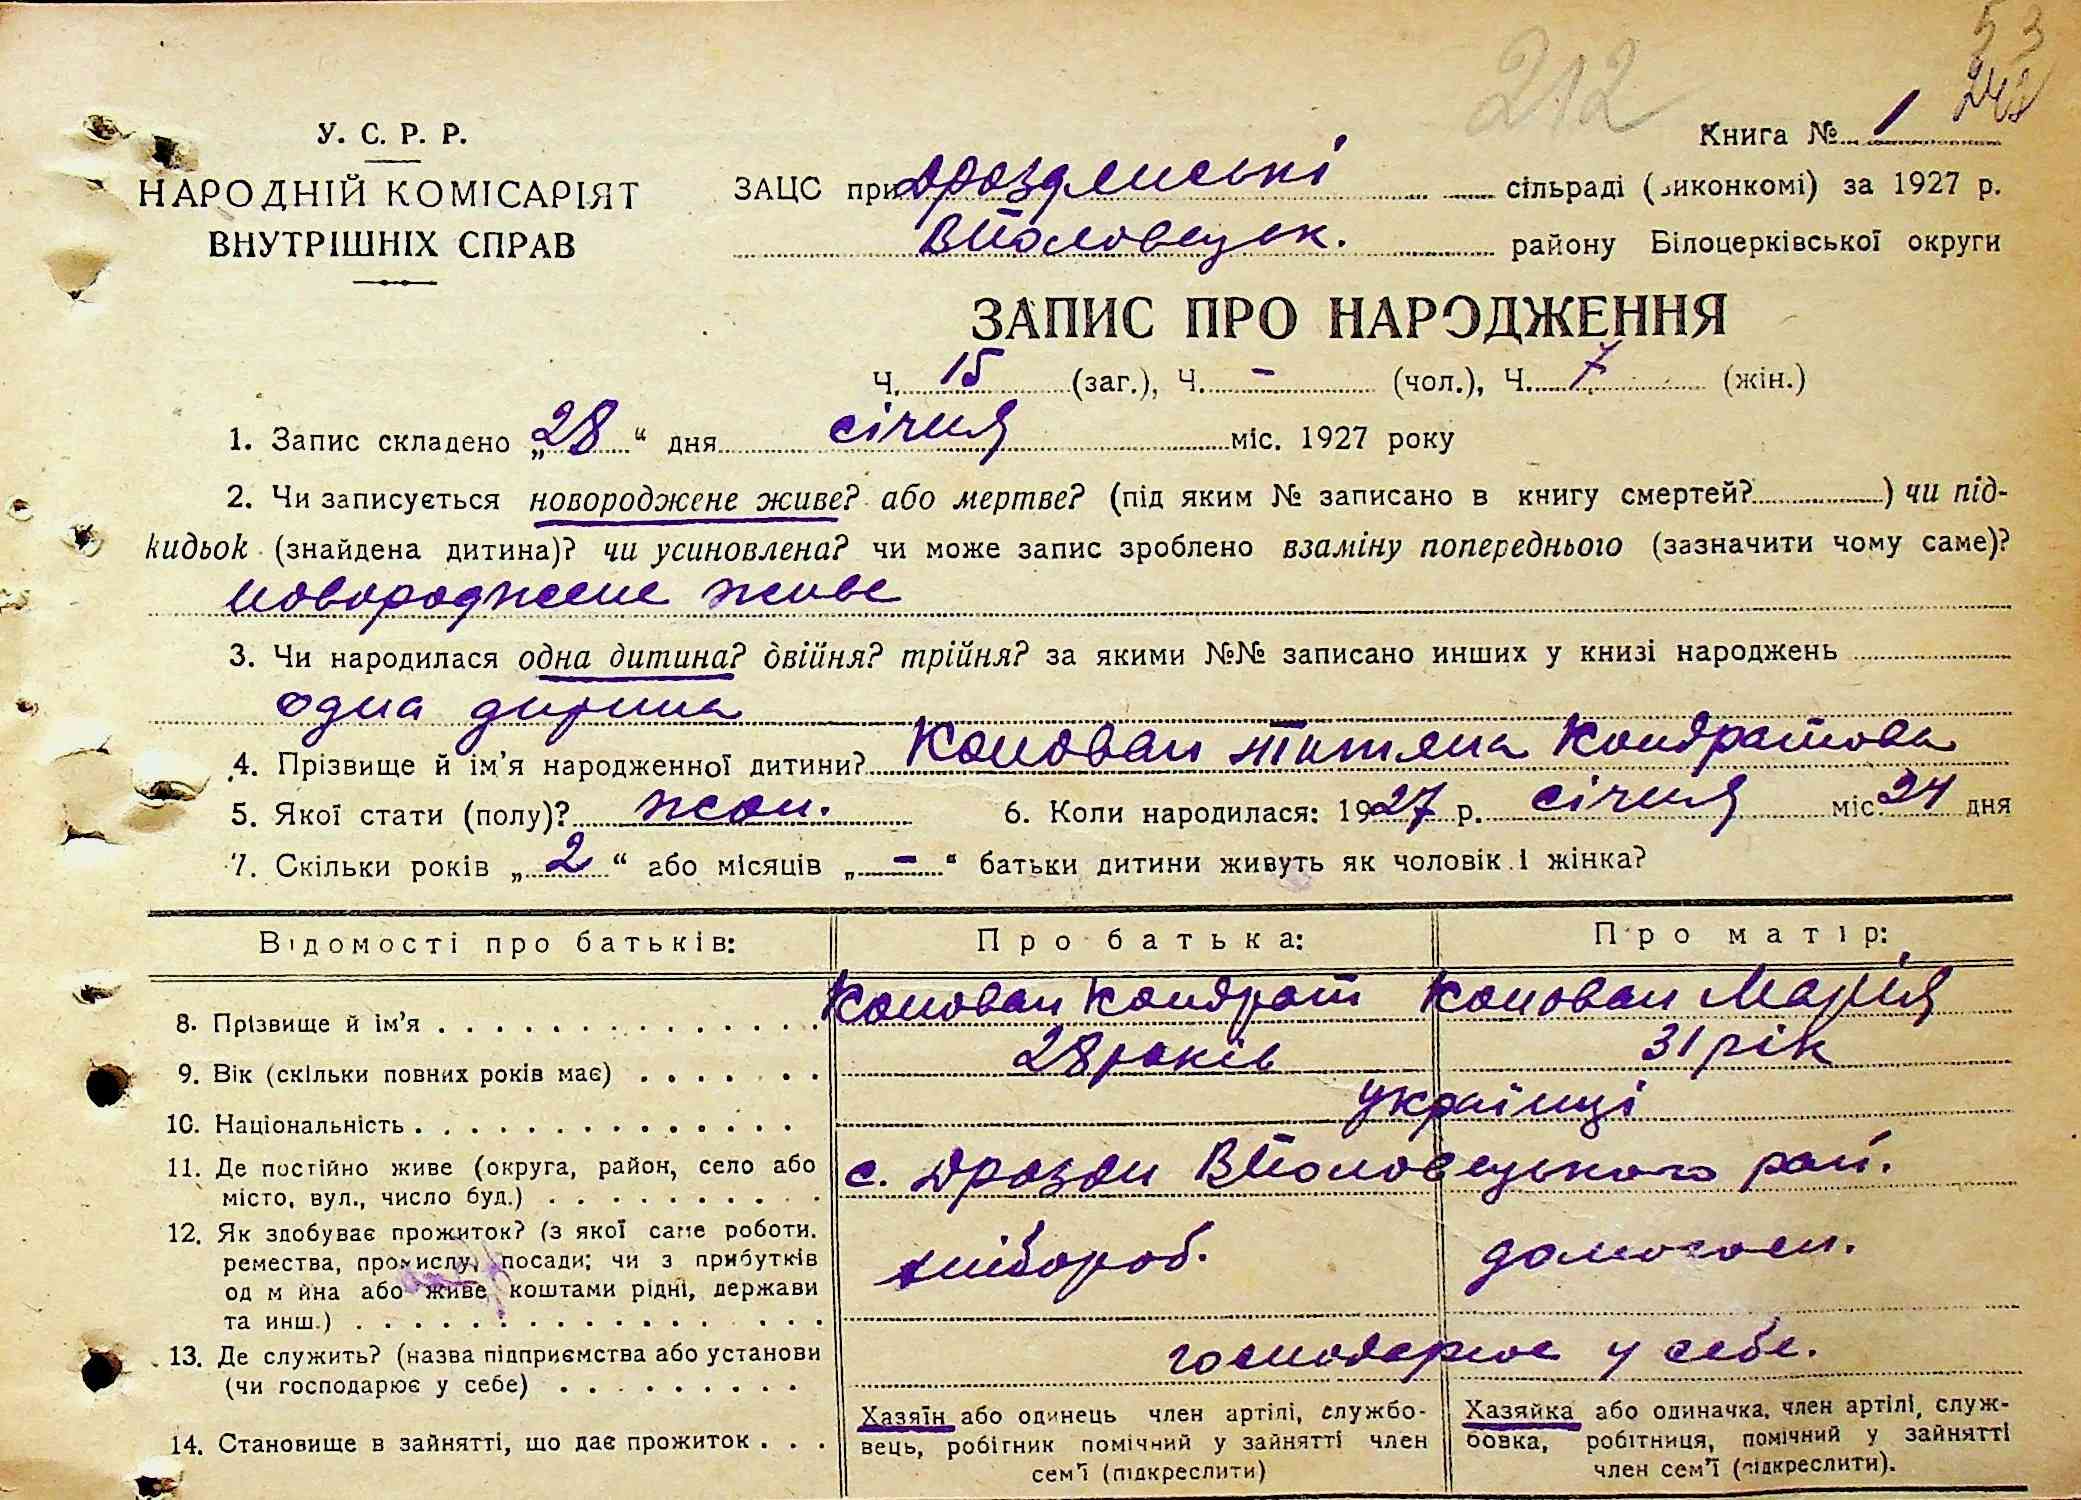 53
212
242
У. С. Р. Р.
НАРОДНІЙ КОМІСАРІЯТ
ВНУТРІШНІХ СПРАВ
Книга № 1
ЗАЦС при Дроздянські сільраді (виконкомі) за 1927 р.
ВПоловецьк. району Білоцерківської округи
ЗАПИС ПРО НАРОДЖЕННЯ
Ч. 15 (заг.), Ч. - (чол.), Ч. 7 (жін.)
1. Запис складено „28“ дня січня міс. 1927 року
2. Чи записується новороджене живе? або мертве? (під яким № записано в книгу смертей? ) чи під-
кидьок (знайдена дитина)? чи усиновлена? чи може запис зроблено взаміну попереднього (зазначити чому саме)?
новороджене живе
3. Чи народилася одна дитина? двійня? трійня? за якими №№ записано инших у книзі народжень
одна дитина
4. Прізвище й ім'я народженної дитини? Коновал Титяна Кондратова
5. Якої стати (полу)? жон. 6. Коли народилася: 1927 р. січня міс. 24 дня
7. Скільки років „2“ або місяців „-“ батьки дитини живуть як чоловік і жінка?
Відомості про батьків: Про батька: Про матір:
8. Прізвище й ім'я Коновал Кондрат Коновал Марія
9. Вік (скільки повних років має) 28 років 31 рік
10. Національність українці
11. Де постійно живе (округа, район, село або
місто, вул., число буд.) с. Дрозди ВПоловецького рай.
12. Як здобуває прожиток? (з якої саме роботи,
ремества, промислу, посади; чи з прибутків
од м йна або живе коштами рідні, держави
та инш.) хлібороб. домогосп.
13. Де служить? (назва підприємства або установи
(чи господарює у себе) господарює у себе.
14. Становище в зайнятті, що дає прожиток
Хазяїн або одинець член артілі, службо-
вець, робітник помічний у зайнятті член
сем'ї (підкреслити)
Хазяйка або одиначка, член артілі, служ-
бовка, робітниця, помічний у зайнятті
член сем'ї (підкреслити).